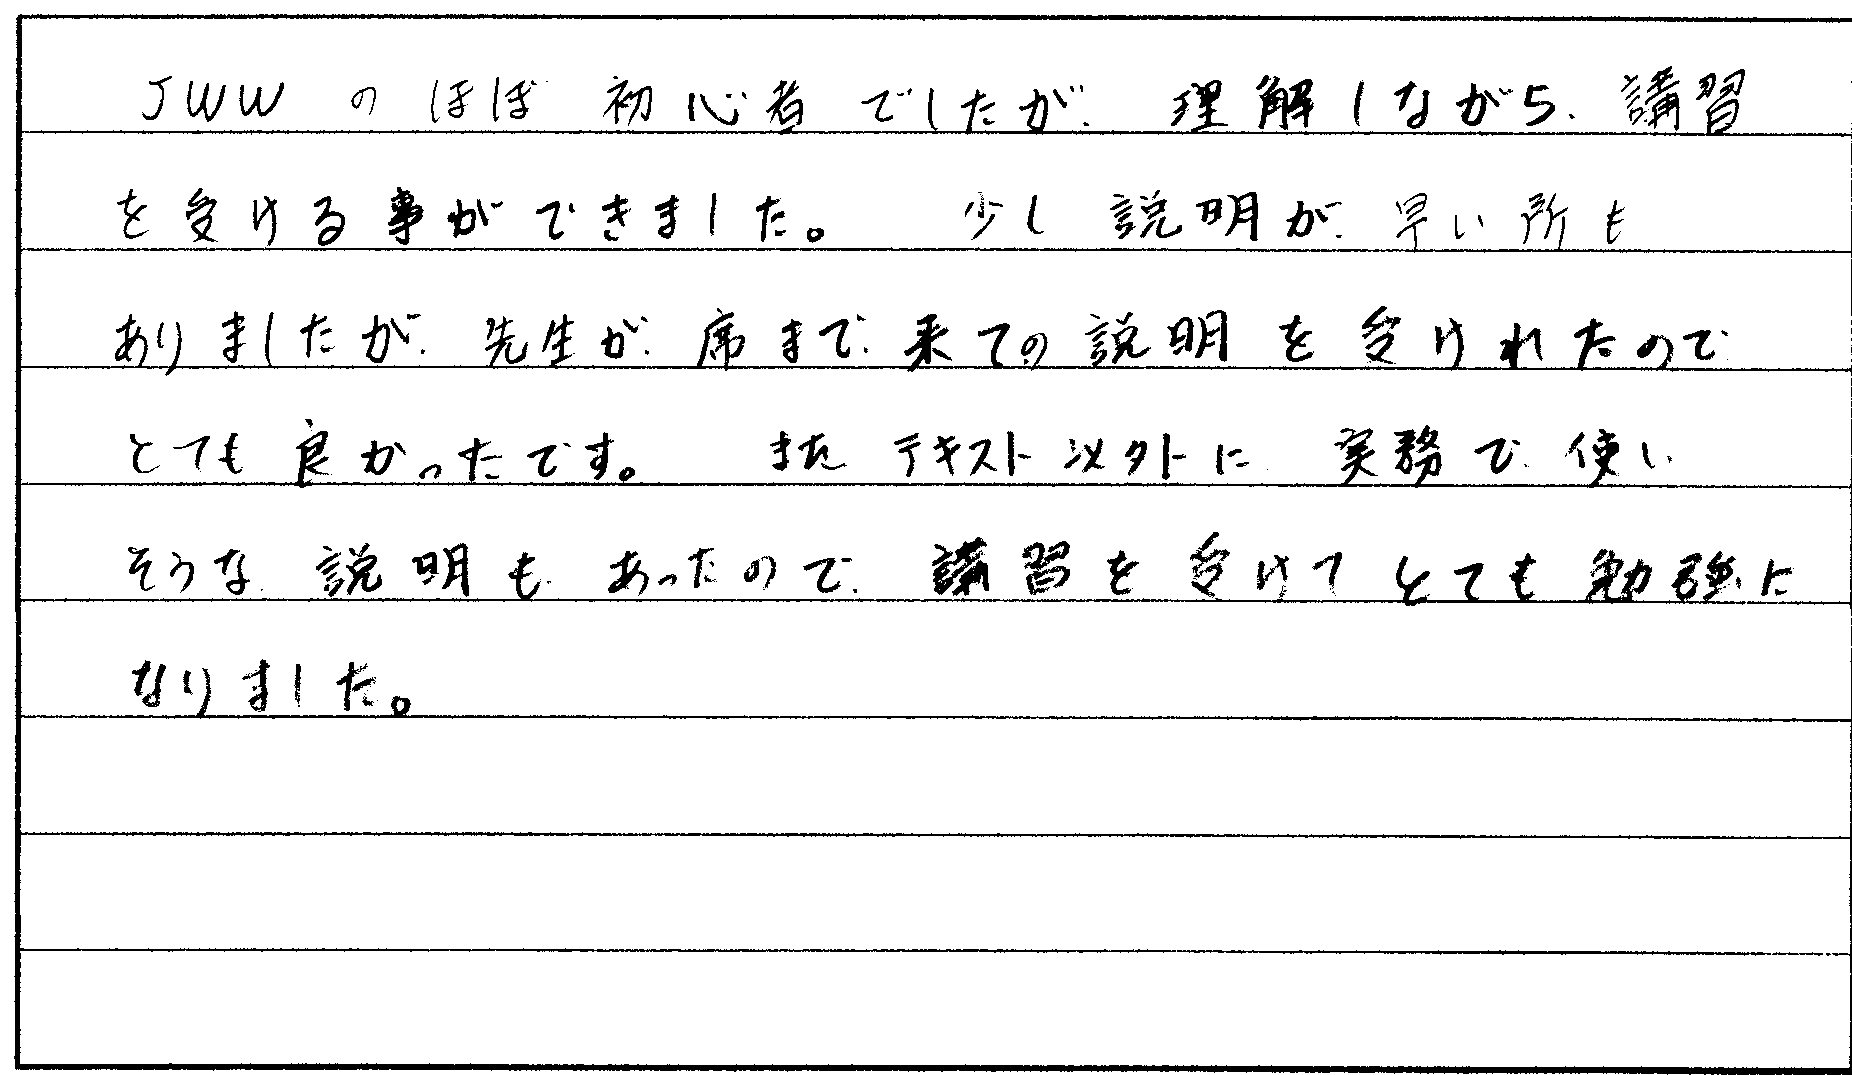 JWWのほぼ初心者でしたが、理解しながら、講習
を受ける事ができました。　少し説明が早い所も
ありましたが、先生が席まで来ての説明を受けれたので
とても良かったです。　またテキスト以外に実務で使い
そうな説明もあったので、講習を受けてとても勉強に
なりました。